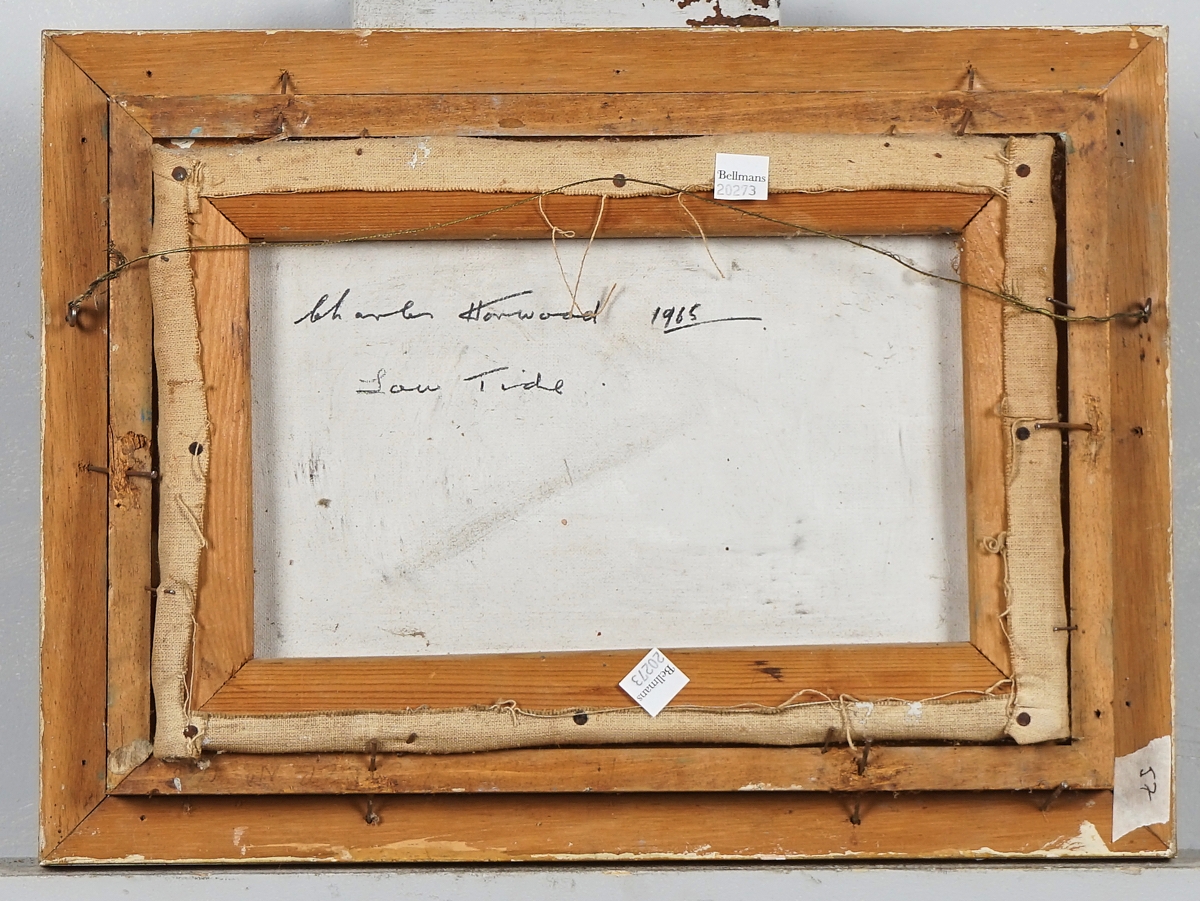 Bellmans
20273
Charles Horwood 1965
Low Tide.
Bellmans
20273
57